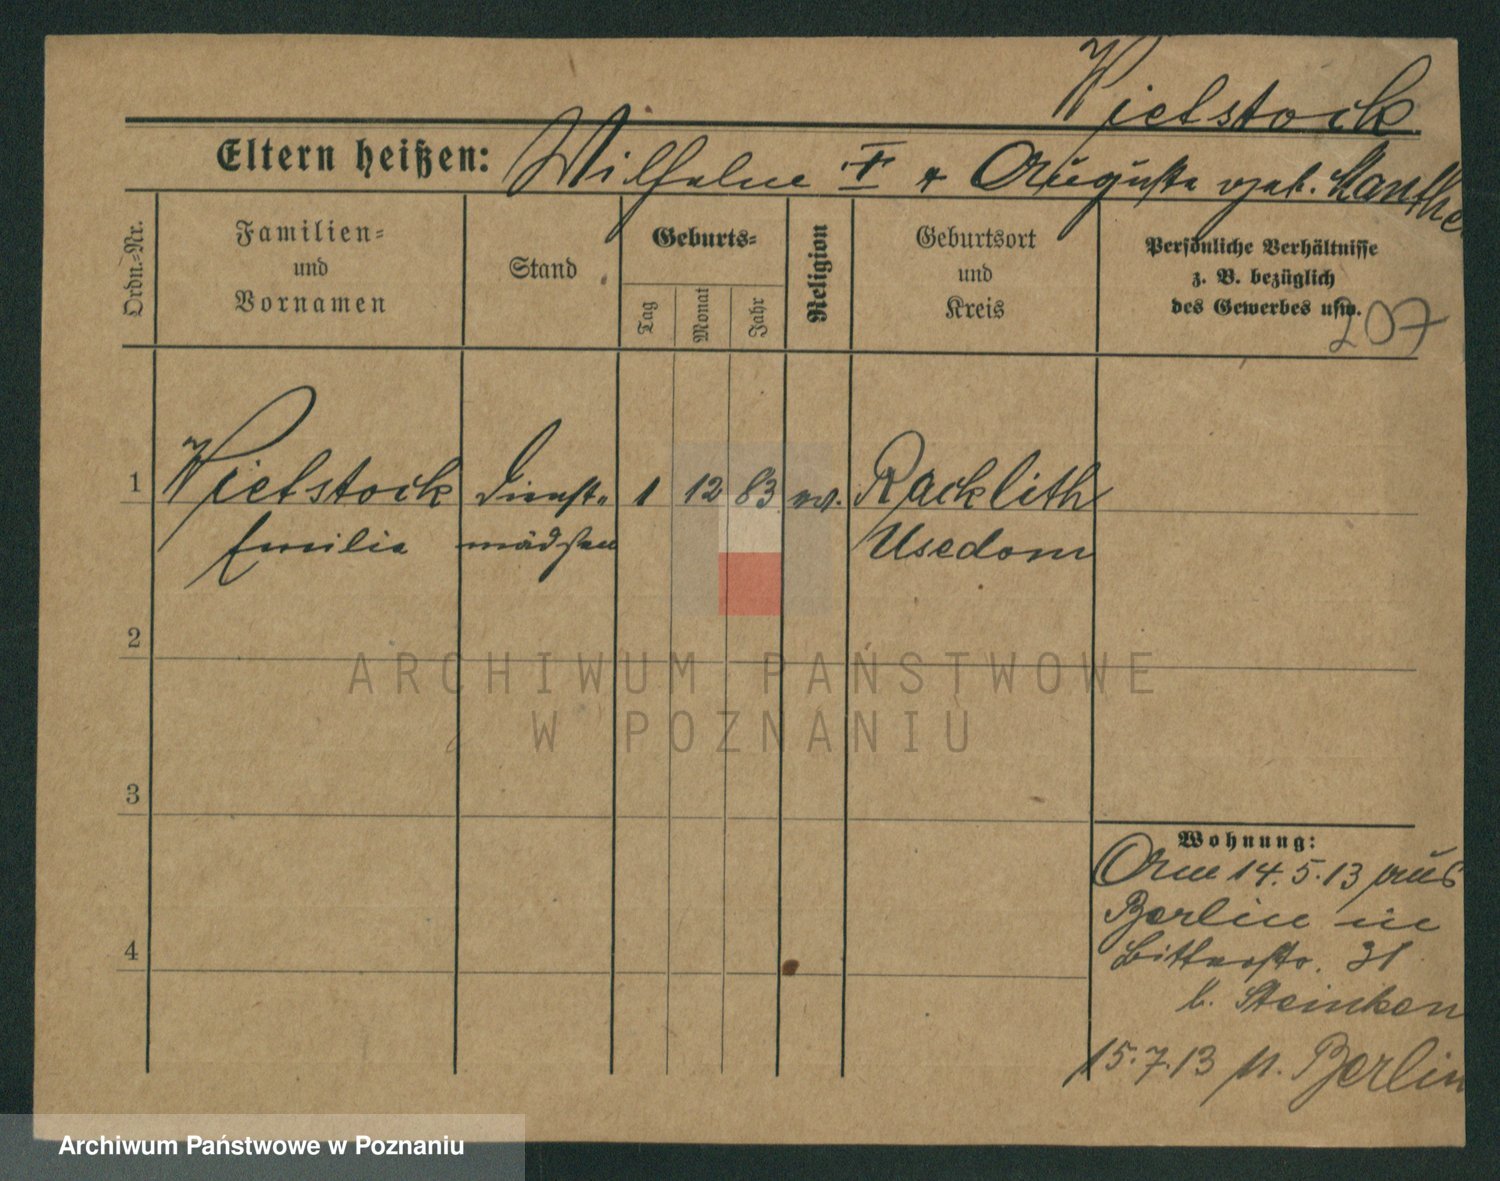 Wietstock
Eltern heißen: Wilhelm † & Auguste geb. Manthe
Ordn.-Nr.
Familien-
und
Vornamen
Stand
Geburts-
Tag
Monat
Jahr
Religion
Geburtsort
und
Kreis
Persönliche Verhältnisse
z. B. bezüglich
des Gewerbes usw.
207
1 Wietstock Dienst- 1 12 83 ev. Racklith
Emilie mädchen Usedom
2
3
4
Wohnung:
Am 14.5.13 aus
Berlin in
Bitterstr. 31
b. Steinken
15.7.13 n. Berlin
ARCHIWUM PAŃSTWOWE
W POZNANIU
Archiwum Państwowe w Poznaniu